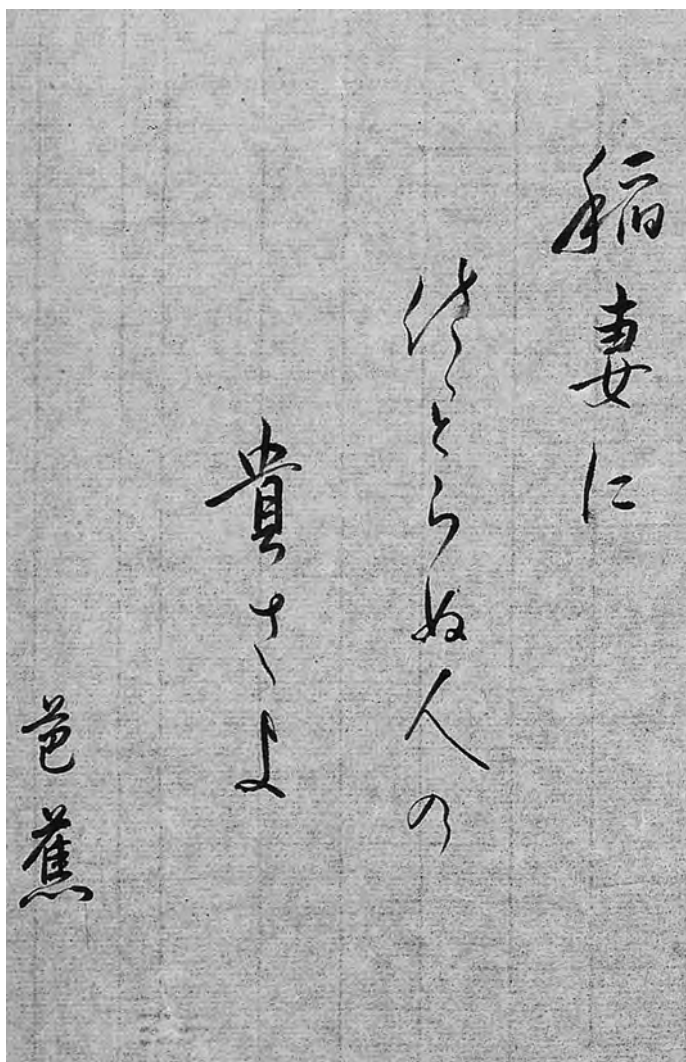 稲妻に
さとらぬ人の
貴さよ
芭蕉